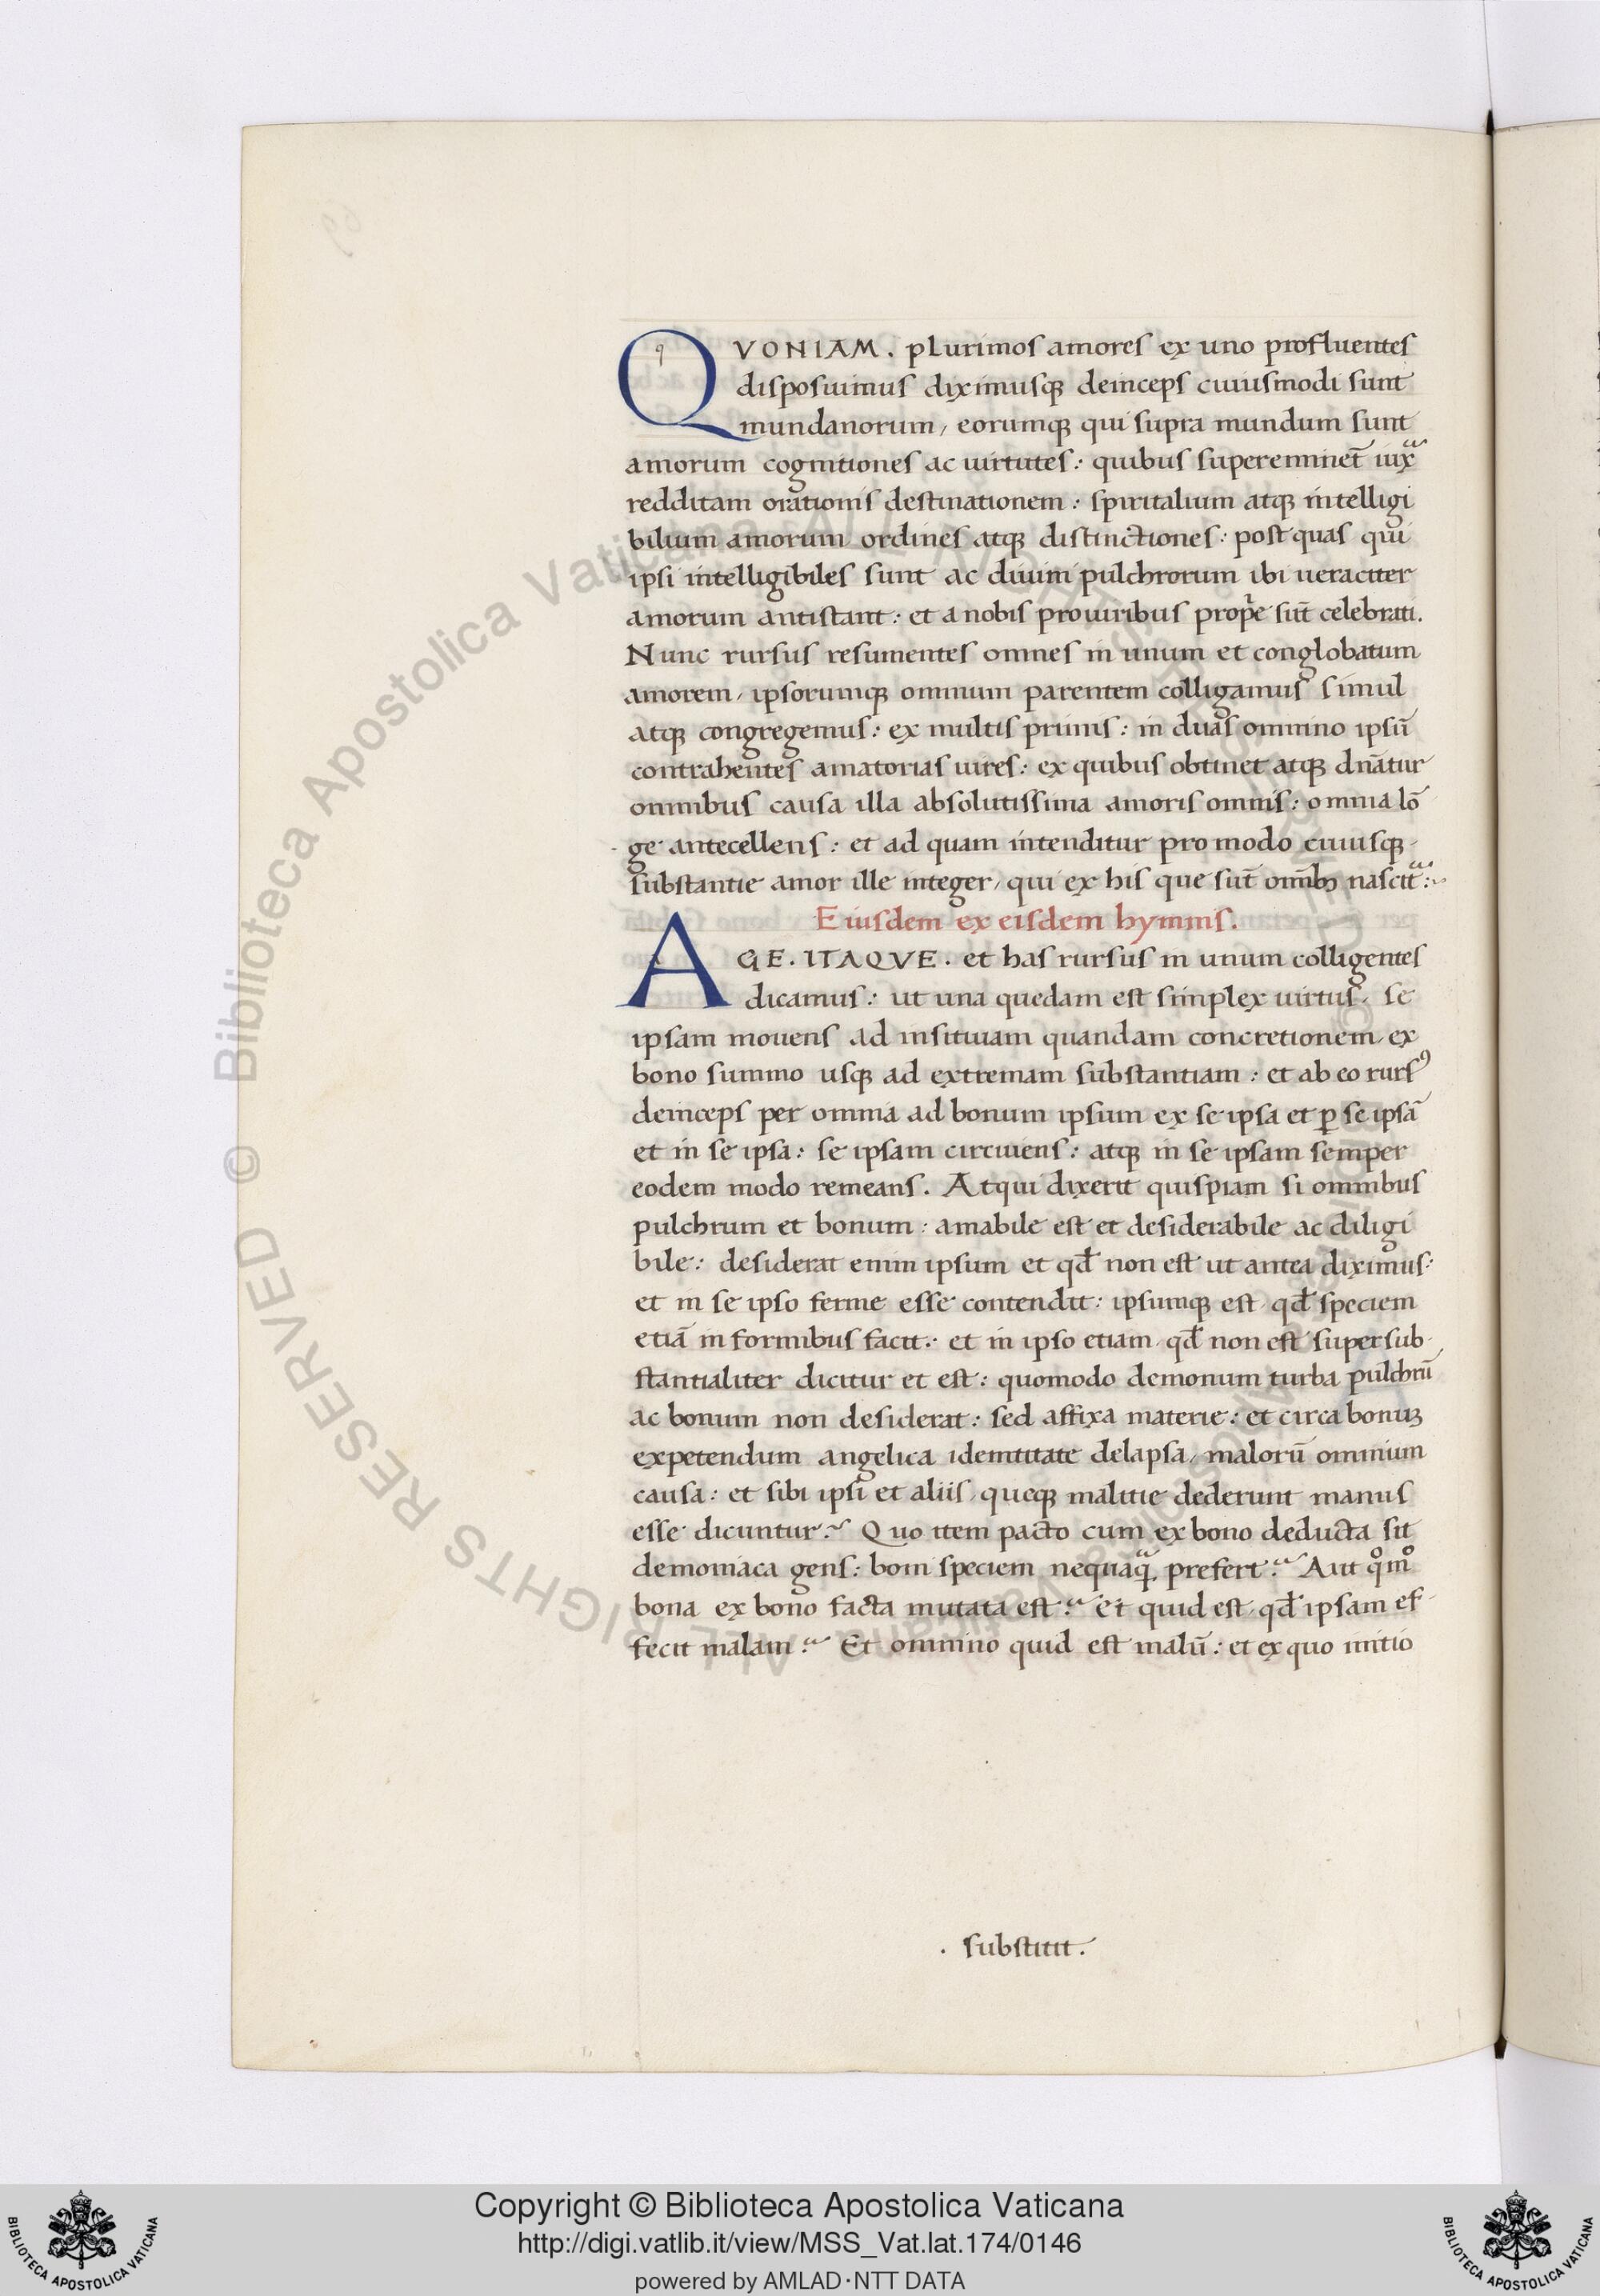 QVONIAM. plurimos amores ex uno profluentes
disposuimus diximusqꝫ deinceps cuiusmodi sunt
mundanorum, eorumqꝫ qui supra mundum sunt
amorum cognitiones ac uirtutes: quibus supereminet̄ iuxᵃ
redditam orationis destinationem: spiritalium atqꝫ intelligi
bilium amorum ordines atqꝫ distinctiones: post quas qui
ipsi intelligibiles sunt ac diuini pulchrorum ibi ueraciter
amorum antistant: et a nobis pro uiribus prop̄e sūt celebrati.
Nunc rursus resumentes omnes in unum et conglobatum
amorem, ipsorumqꝫ omnium parentem colligamus simul
atqꝫ congregemus: ex multis primis: in duas omnino ipsū
contrahentes amatorias uires: ex quibus obtinet atqꝫ dn̄atur
omnibus causa illa absolutissima amoris omnis: omnia lō
ge antecellens: et ad quam intenditur pro modo cuiusqꝫ
substantie amor ille integer, qui ex his que sūt om̄ibꝫ nascitᵃ:
Eiusdem ex eisdem hymnis.
AGE. ITAQVE. et has rursus in unum colligentes
dicamus: ut una quedam est simplex uirtus, se
ipsam mouens ad insitiuam quandam concretionem, ex
bono summo usqꝫ ad extremam substantiam: et ab eo rursꝰ
deinceps per omnia ad bonum ipsum ex se ipsa et ꝑ se ipsā
et in se ipsa: se ipsam circuiens: atqꝫ in se ipsam semper
eodem modo remeans. Atqui dixerit quispiam si omnibus
pulchrum et bonum: amabile est et desiderabile ac diligi
bile: desiderat enim ipsum et qd̄ non est ut antea diximus:
et in se ipso ferme esse contendit: ipsumqꝫ est, qd̄ speciem
etiā in formibus facit: et in ipso etiam, qd̄ non est supersub
stantialiter dicitur et est: quomodo demonum turba pulchrū
ac bonum non desiderat: sed affixa materie: et circa bonuꝫ
expetendum angelica identitate delapsa, malorū omnium
causa: et sibi ipsi et aliis, queqꝫ malitie dederunt manus
esse dicuntur? Quo item pacto cum ex bono deducta sit
demoniaca gens: boni speciem nequaqᵃ. prefert? Aut qᵒmᵒ
bona ex bono facta mutata est? et quid est, qd̄ ipsam ef
fecit malam? Et omnino quid est malū: et ex quo initio
. substitit.
© Biblioteca Apostolica Vaticana ALL RIGHTS RESERVED
Copyright © Biblioteca Apostolica Vaticana
http://digi.vatlib.it/view/MSS_Vat.lat.174/0146
powered by AMLAD·NTT DATA
BIBLIOTECA APOSTOLICA VATICANA
BIBLIOTECA APOSTOLICA VATICANA